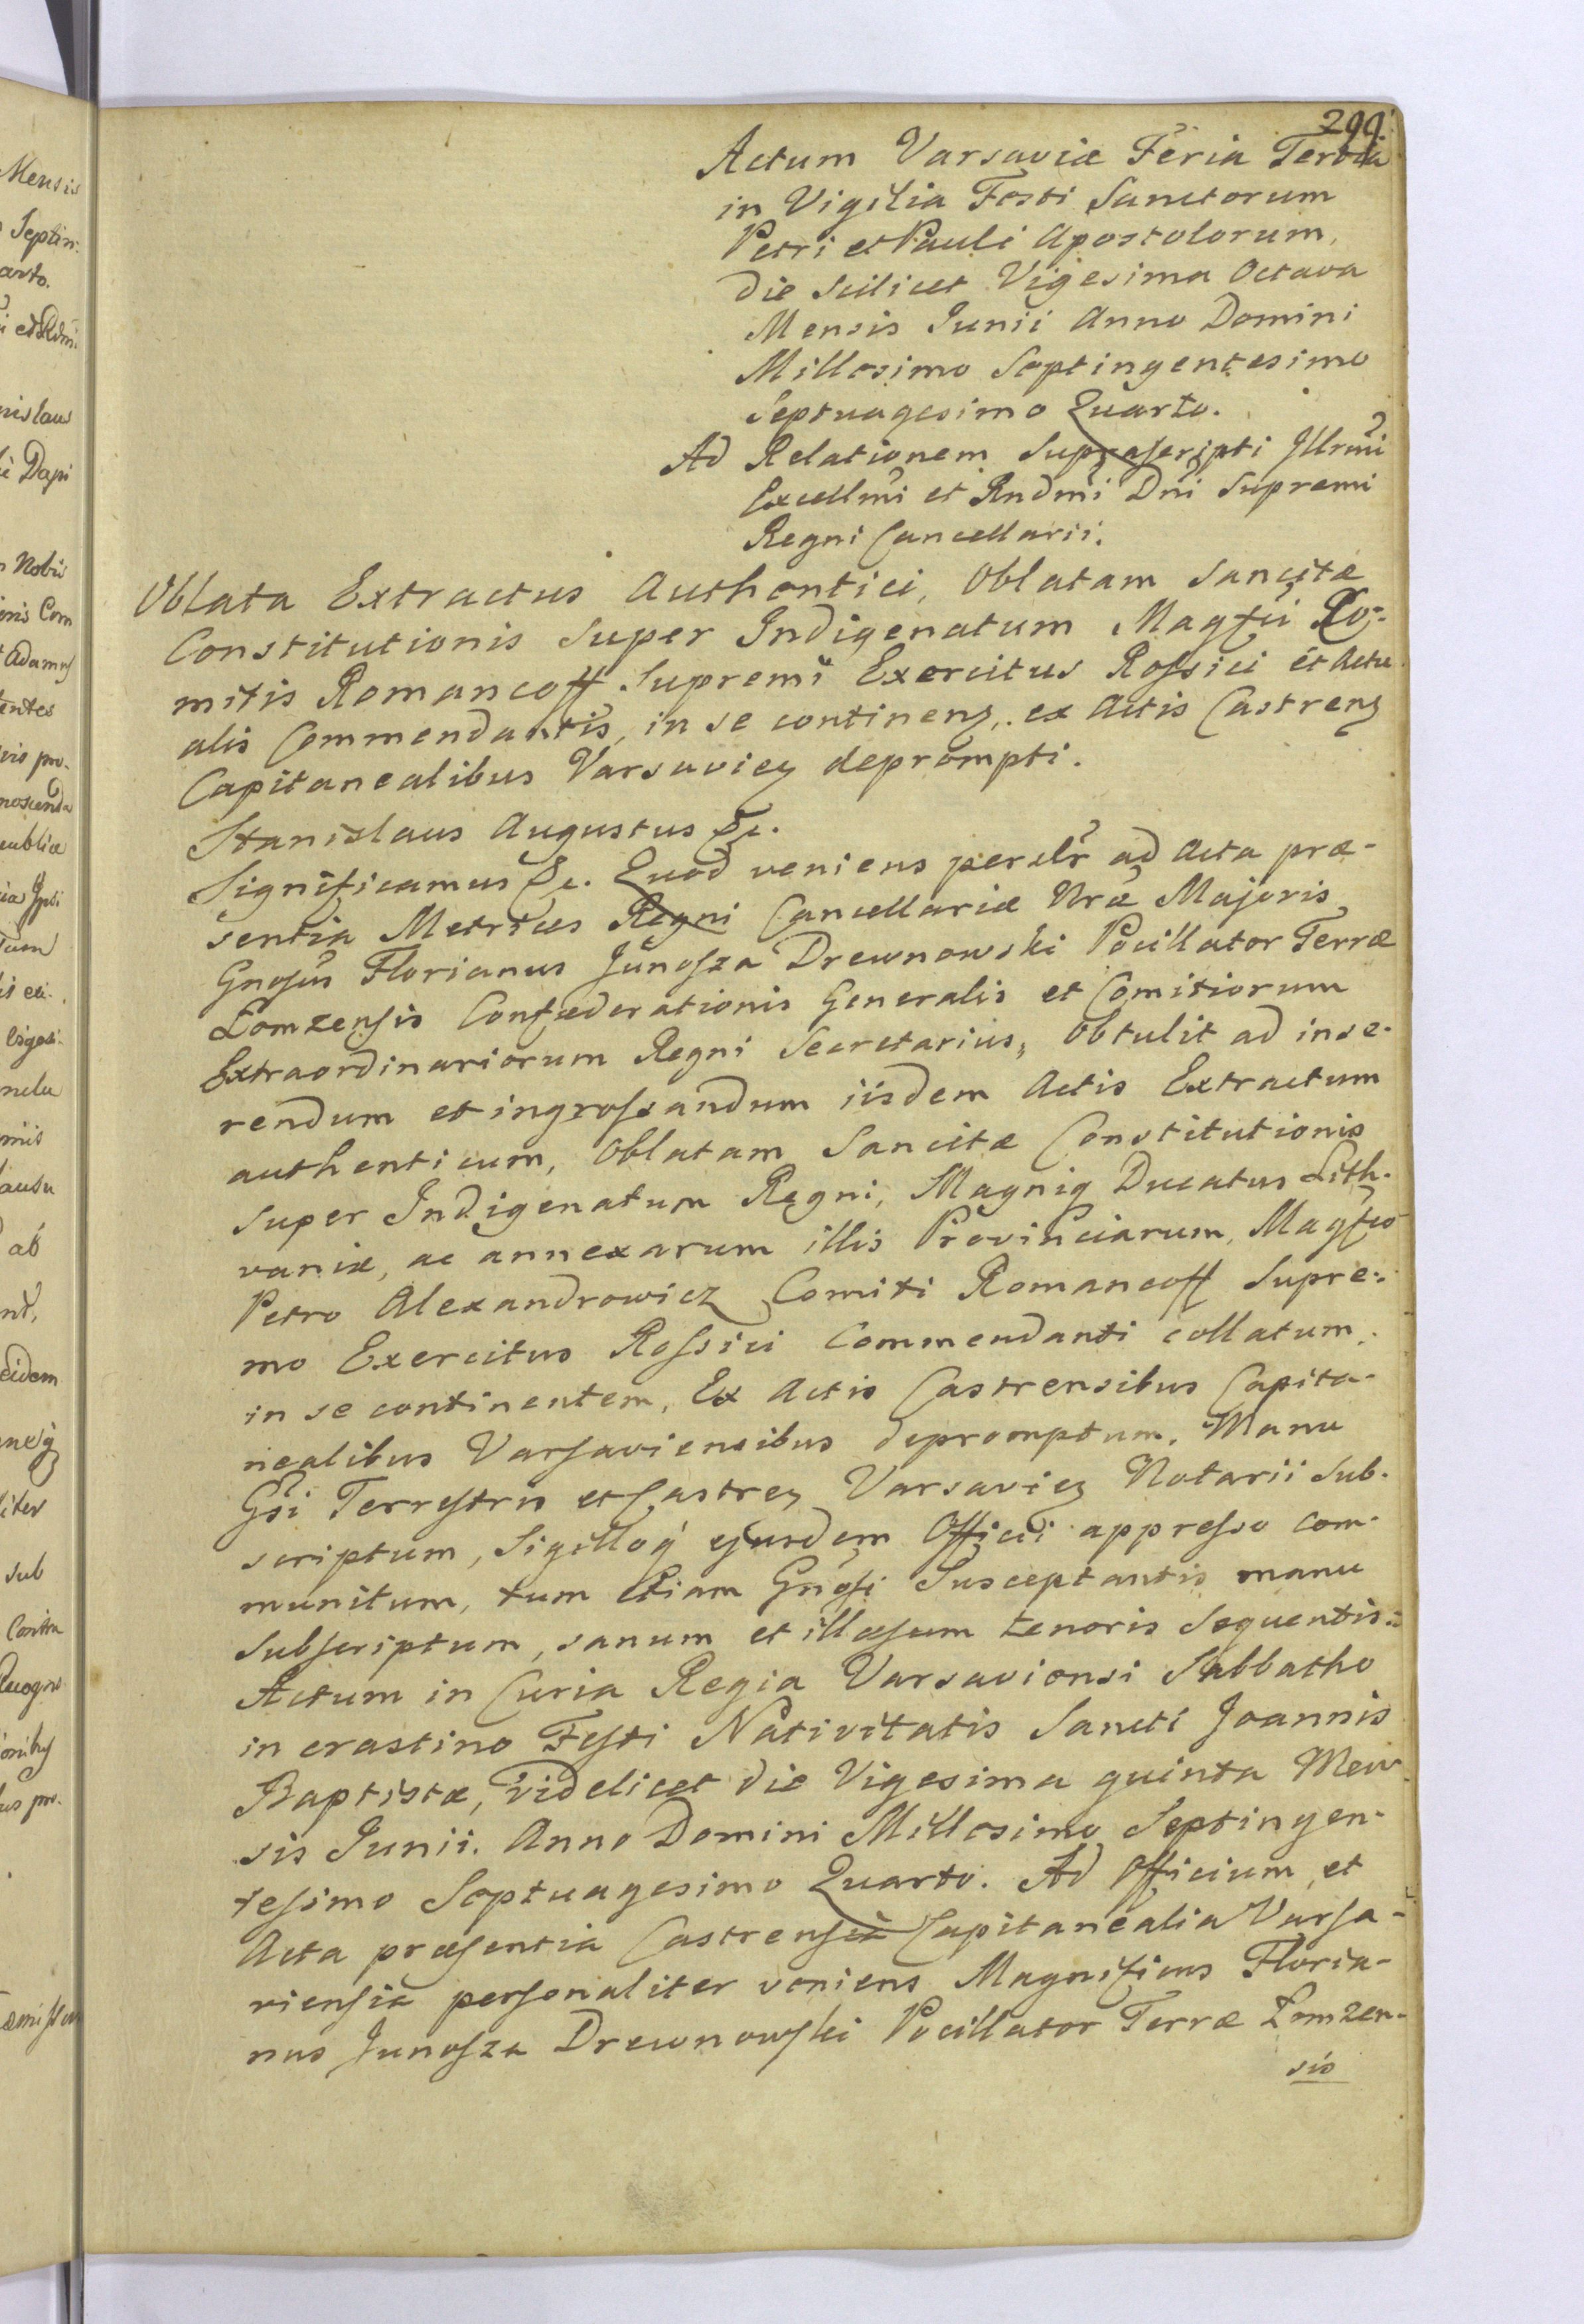 299.
Actum Varsaviæ Feria Tertia
in Vigilia Festi Sanctorum
Petri et Pauli Apostolorum,
die scilicet Vigesima Octava
Mensis Junii Anno Domini
Millesimo Septingentesimo
Septuagesimo Quarto.
Ad Relationem suprascripti Illrmi
Excellmi et Rndmi Dni Supremi
Regni Cancellarii.
Oblata Extractus Authentici, Oblatam Sancitæ
Constitutionis super Indigenatum Magfci Co-
mitis Romancoff Supremi Exercitus Rossici et Actu
alis Commendantis, in se continenz, ex Actis Castrenz
Capitanealibus Varsaviez deprompti.
Stanislaus Augustus &c.
Significamus &c. Quod veniens perslr ad Acta præ-
sentia Metrices Regni Cancellariæ Nræ Majoris
Gnosus Florianus Junosza Drewnowski Pocillator Terræ
Łomzensis Confæderationis Generalis et Comitiorum
Extraordinariorum Regni Secretarius, obtulit ad inse-
rendum et ingrossandum iisdem Actis Extractum
authenticum, Oblatam Sancitæ Constitutionis
super Indigenatum Regni, Magniq Ducatus Lith-
vaniæ, ac annexarum illis Provinciarum, Magfco
Petro Alexandrowicz Comiti Romancoff Supre-
mo Exercitus Rossici Commendanti collatum,
in se continentem, Ex Actis Castrensibus Capita-
nealibus Varsaviensibus depromptum, Manu
Gsi Terrestris et Castrez Varsaviez Notarii sub-
scriptum, Sigilloq ejusdem Officii appresso com-
munitum, tum etiam Gnosi Susceptantis manu
subscriptum, sanum et illæsum tenoris sequentis:
Actum in Curia Regia Varsaviensi Sabbatho
in crastino Festi Nativitatis Sancti Joannis
Baptistæ, videlicet die Vigesima quinta Men
sis Junii. Anno Domini Millesimo Septingen-
tesimo Septuagesimo Quarto. Ad Officium et
Acta præsentia Castrensia Capitanealia Varsa-
viensia personaliter veniens Magnificus Floria-
nus Junosza Drewnowski Pocillator Terræ Łomzen-
sis